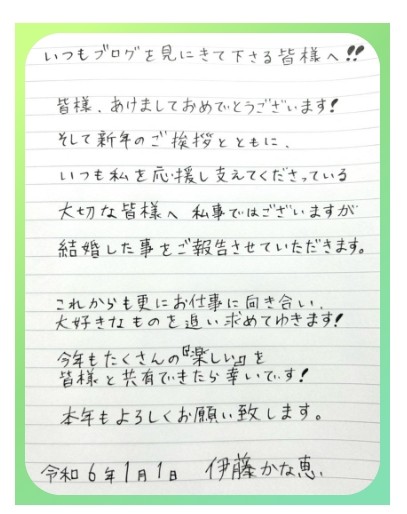 いつもブログを見にきて下さる皆様へ!!
皆様、あけましておめでとうございます!
そして新年のご挨拶とともに、
いつも私を応援し支えてくださっている
大切な皆様へ 私事ではございますが
結婚した事をご報告させていただきます。
これからも更にお仕事に向き合い、
大好きなものを追い求めてゆきます!
今年もたくさんの『楽しい』を
皆様と共有できたら幸いです!
本年もよろしくお願い致します。
令和6年1月1日 伊藤かな恵.